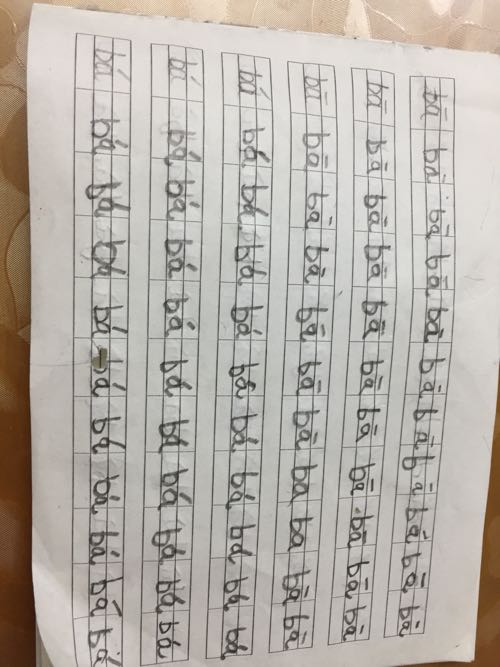 bā bā bā bā bā bā bā bā bā bā bā
bā bā bā bā bā bā bā bā bā bā bā
bā bā bā bā bā bā bā ba ba bā bā
bá bá bá bá bá bá bá bá bá bá bá
bá bá bá bá bá bá bá bá bá bá bá
bá bá bá bá bá á bá bá bá bá bá